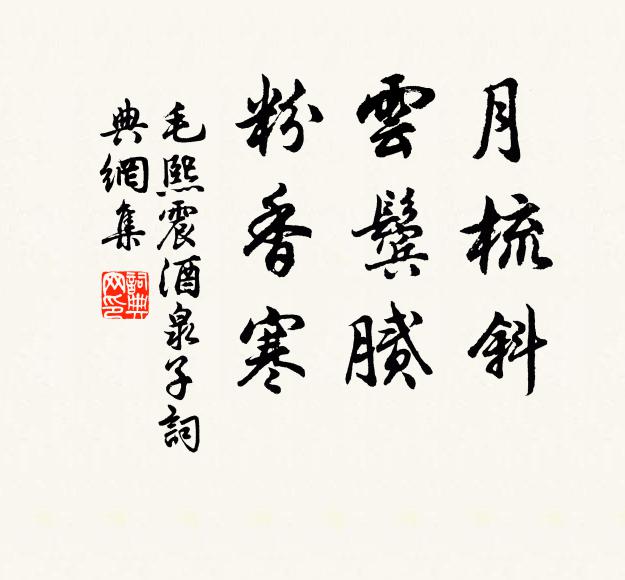 月梳斜
雲鬓膩
粉香寒
毛熙震酒泉子詞
典網集
詞典
网印